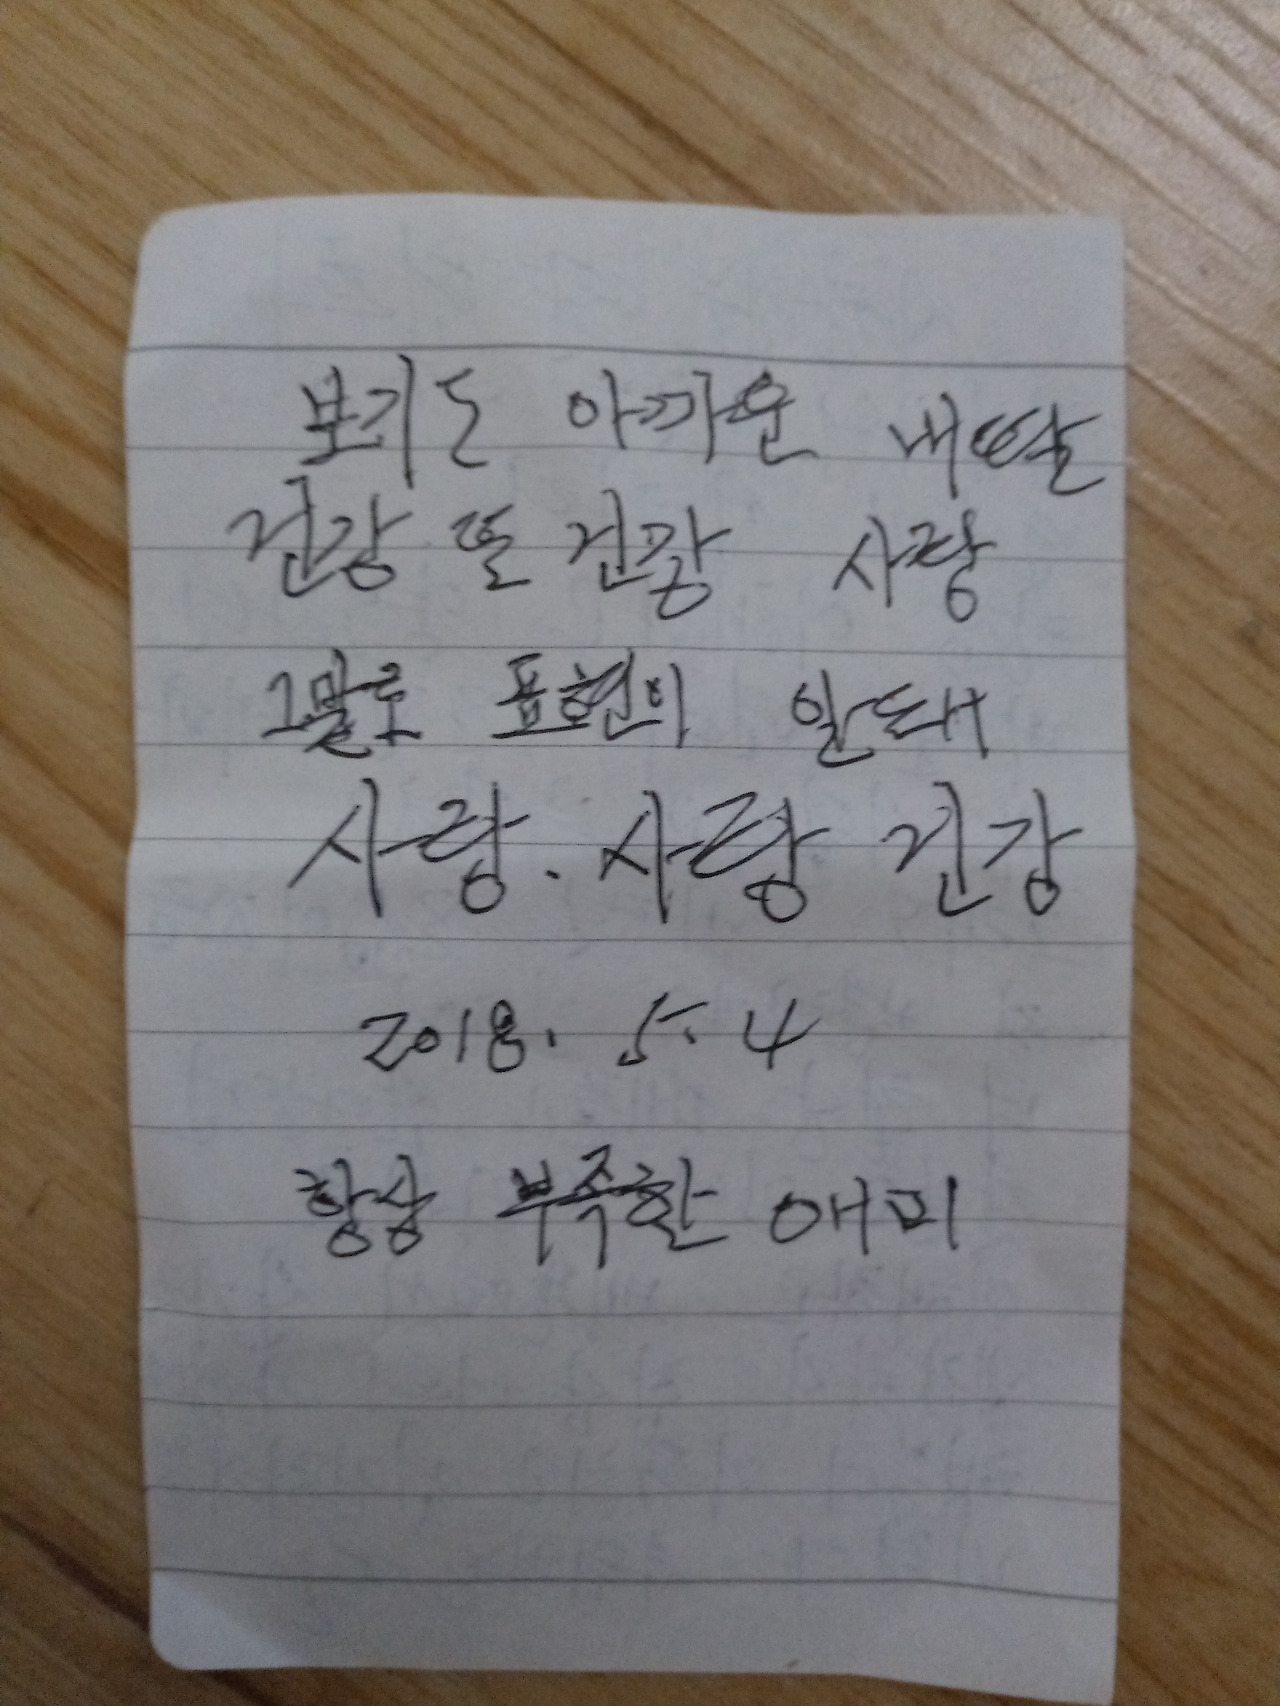 보기도 아까운 내딸
건강 또 건강 사랑
그말로 표현이 안돼
사랑. 사랑 건강
2018. 5. 4
항상 부족한 애미